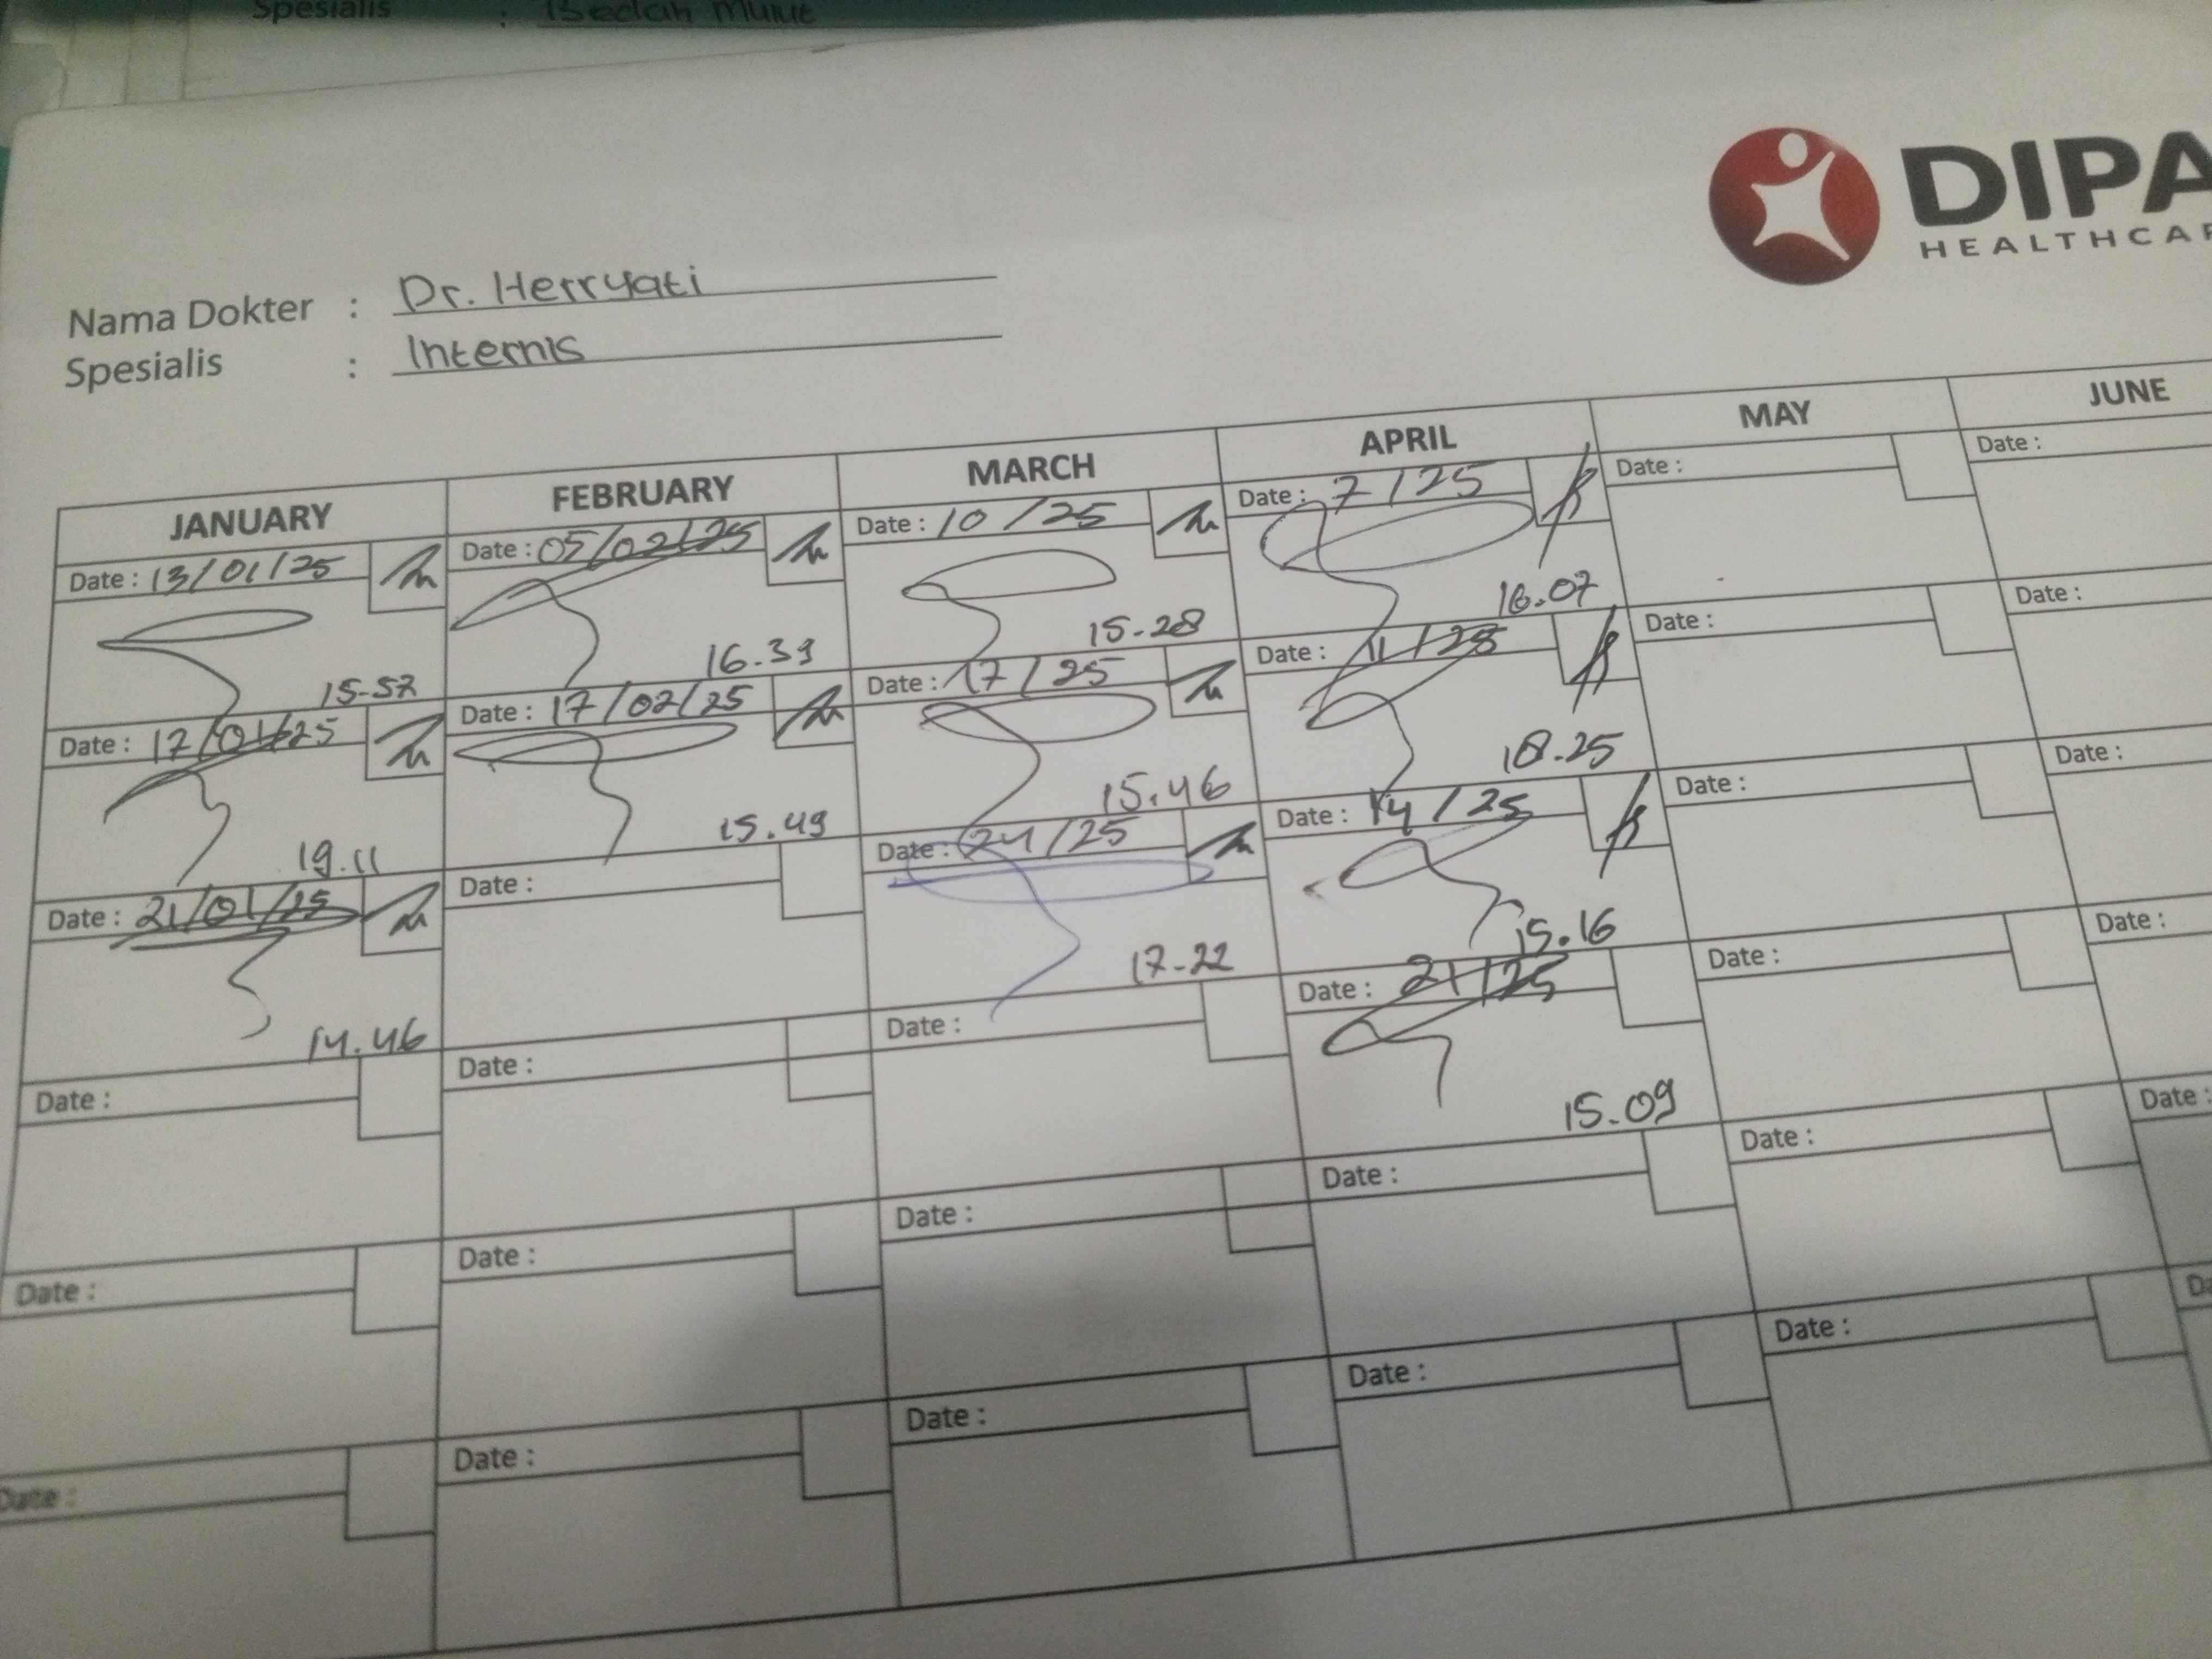 Spesialis : Bedah Mulut
DIPA
HEALTHCAR
Nama Dokter : Dr. Herryati
Spesialis : Internis
JANUARY FEBRUARY MARCH APRIL MAY JUNE
Date : 13/01/25 Date : 05/02/25 Date : 10/25 Date : 7/25 Date : Date :
15-57 16.39 15-28 16.07
Date : 17/01/25 Date : 17/02/25 Date : 17/25 Date : 11/25 Date : Date :
19.11 15.49 15.46 18.25
Date : 21/01/25 Date : Date : 24/25 Date : 14/25 Date : Date :
14.46 17-22 15.16
Date : Date : Date : Date : 21/25 Date : Date :
15.09
Date : Date : Date : Date : Date : Date :
Date : Date : Date : Date : Date : Da